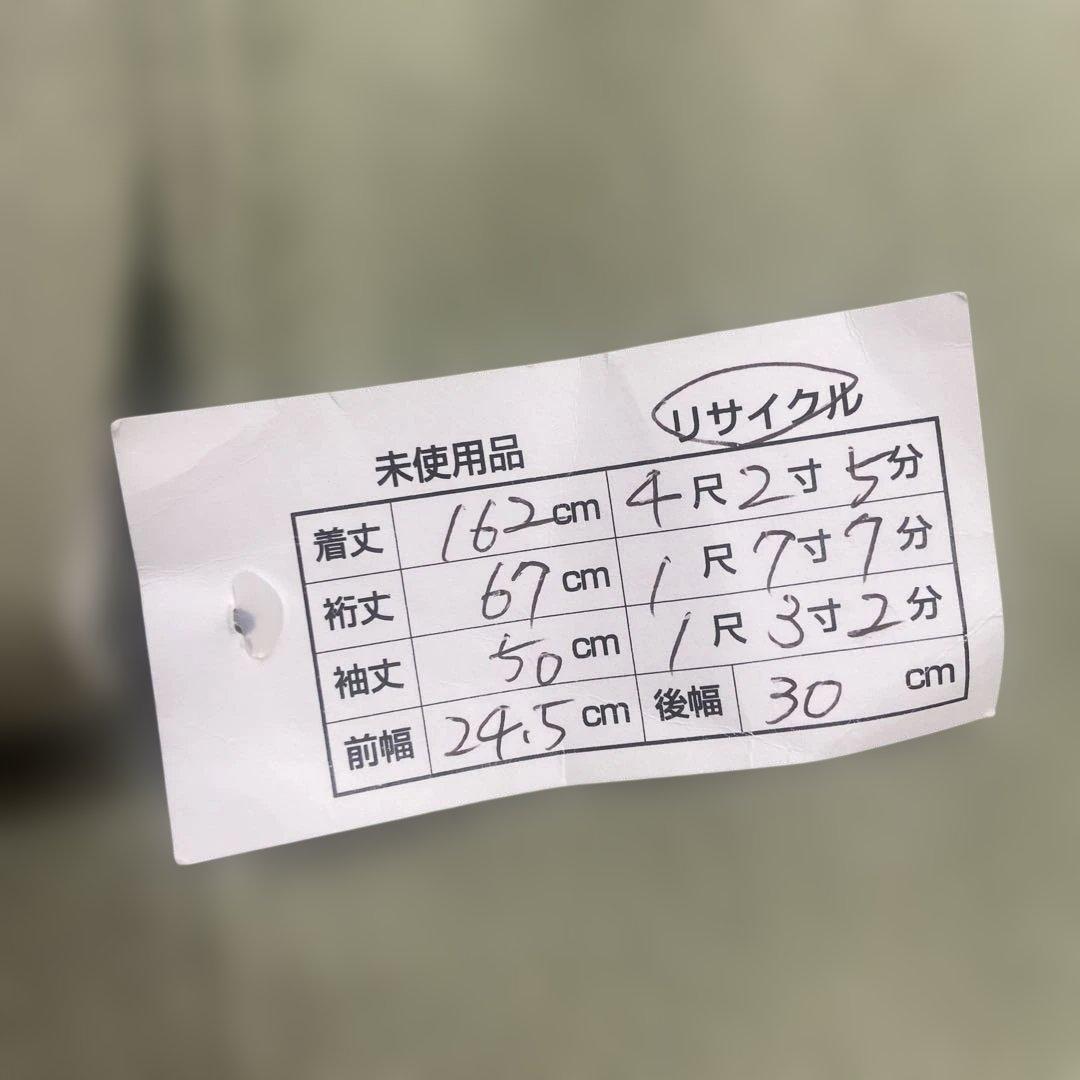 未使用品 リサイクル
着丈 162cm 4尺2寸5分
裄丈 67cm 1尺7寸7分
袖丈 50cm 1尺3寸2分
前幅 24.5cm 後幅 30cm